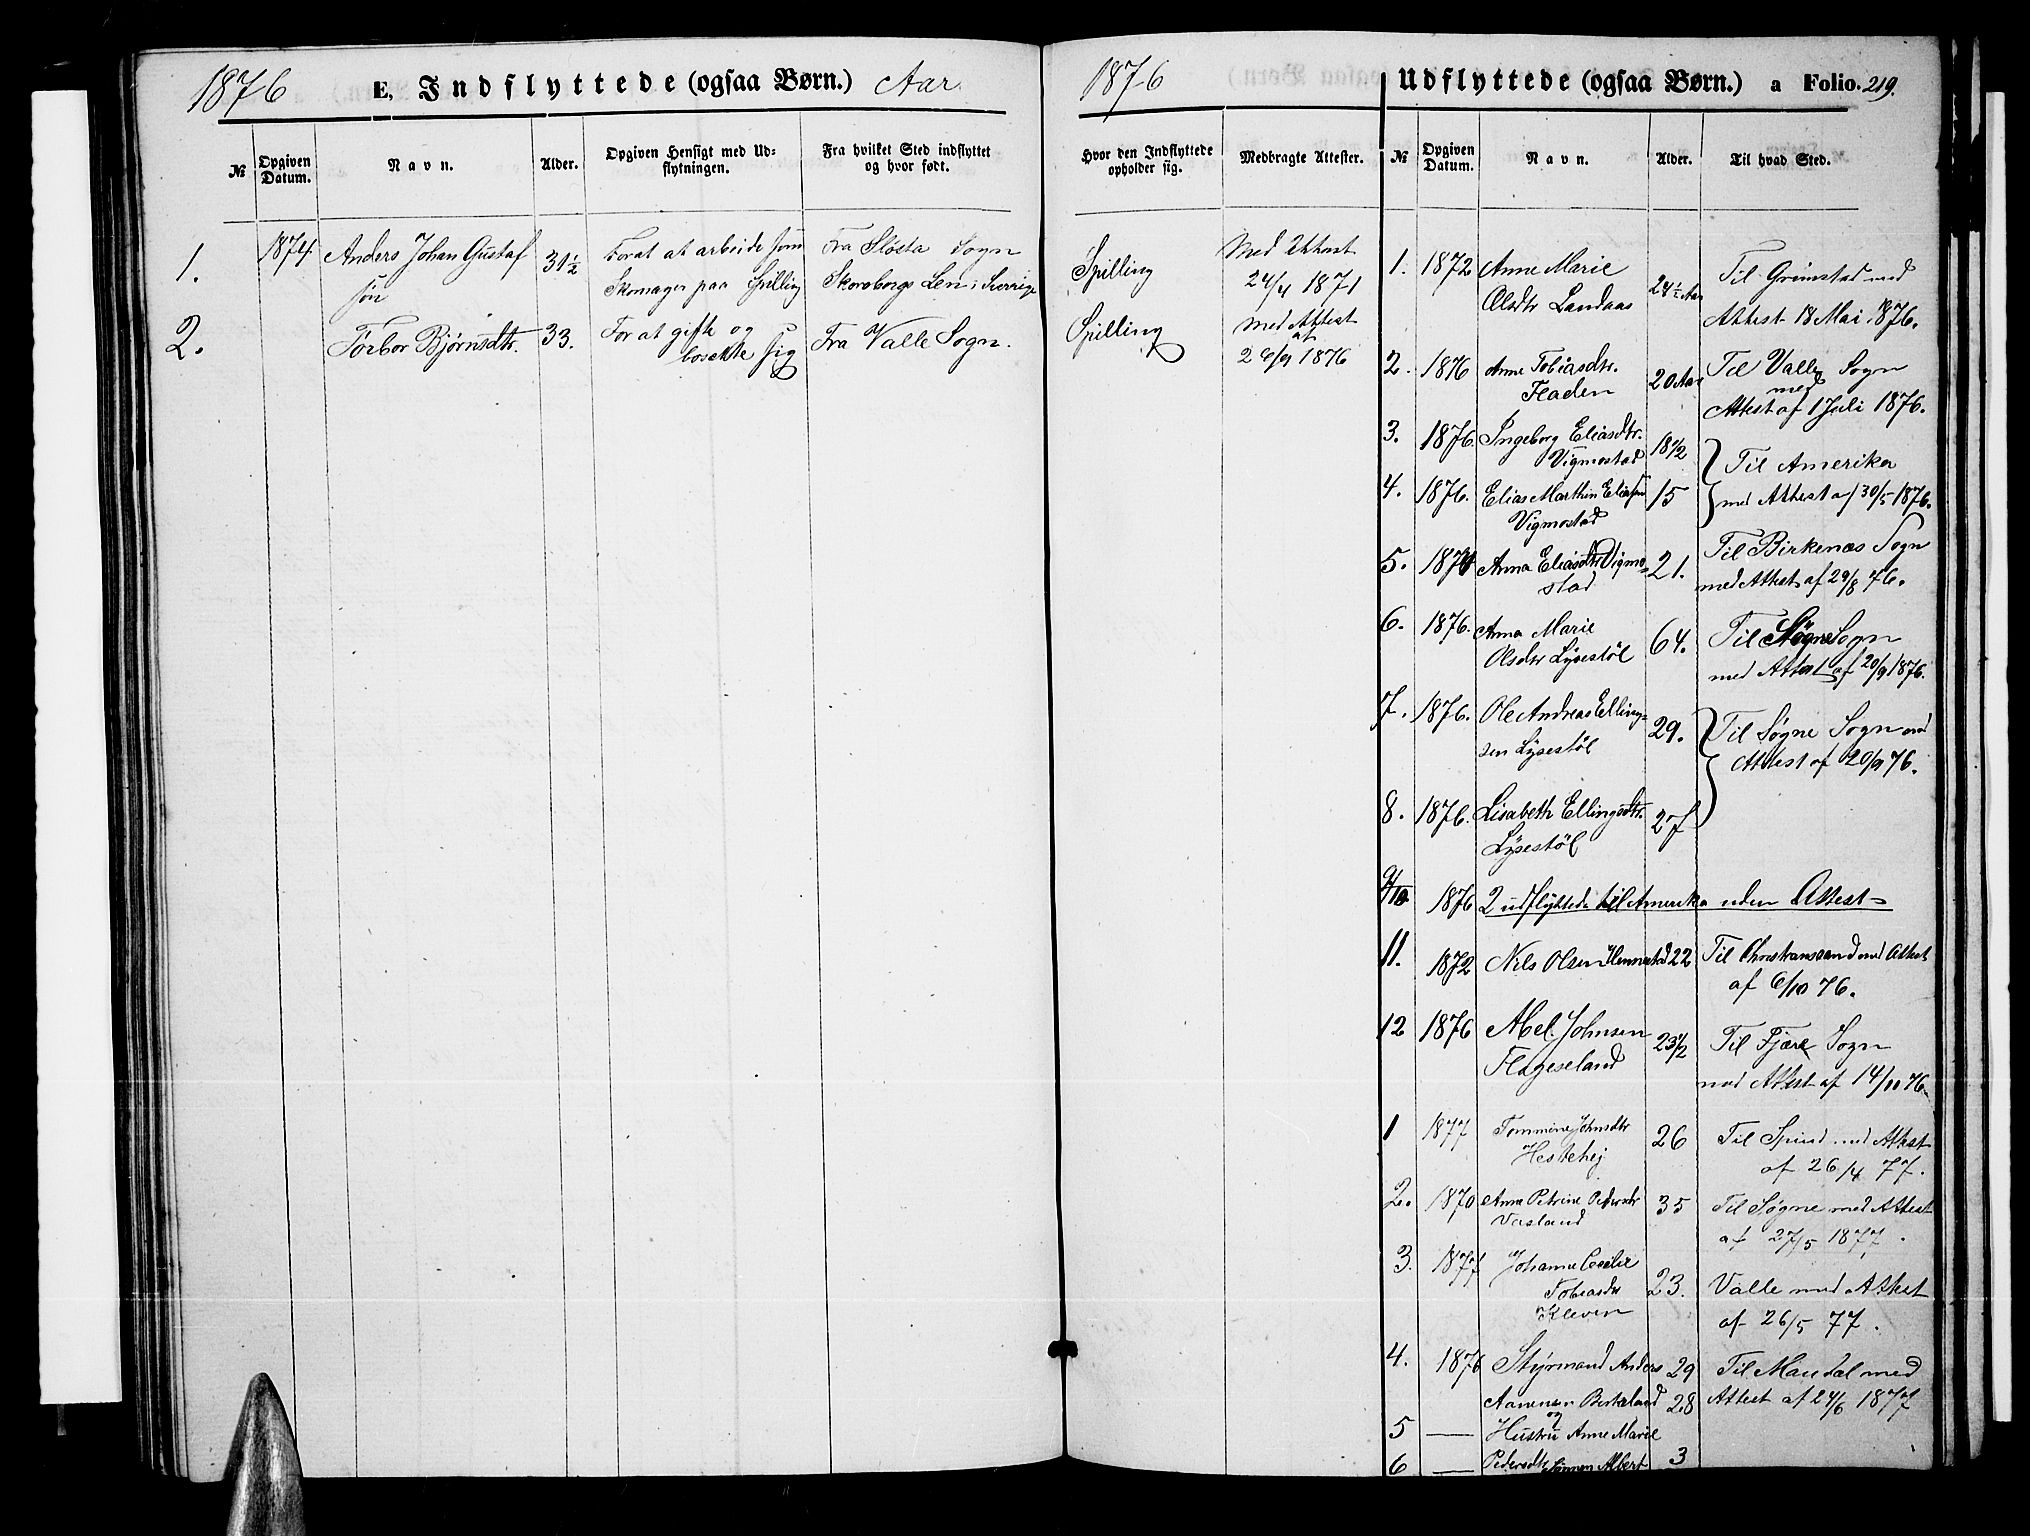 1876
E. Indflyttede (ogsaa Børn.) Aar
№
Opgiven Datum.
Navn.
Alder.
Opgiven Hensigt med Ud-
flytningen.
Fra hvilket Sted indflyttet
og hvor født.
1. 1874 Anders Johan Gustaf 31½ For at arbeide som Fra Slösta Sogn
søn Skomager paa Spilling Skaraborgs Len i Sverrige
2. Torbor Bjørnsdtr. 33. For at gifte og Fra Valle Sogn.
bosætte sig
1876
Udflyttede (ogsaa Børn.) a Folio. 219.
Hvor den Indflyttede
opholder sig.
Medbragte Attester.
№
Opgiven
Datum.
Navn.
Alder.
Til hvad Sted.
Spilling Med Attest
24/4 1871
Spilling med Attest
af
26/9 1876
1. 1872 Anne Marie 24½ Aar Til Grimstad med
Olsdtr Landaas Attest 18 Mai 1876.
2. 1876 Anne Tobiasdtr. 20 Aar Til Valle Sogn
Fladen med
Attest af 1 Juli 1876.
3. 1876. Ingeborg Eliasdtr. 18½
Vigmostad Til Amerika
4. 1876. Elias Marthin Eliassen 15 med Attest af 30/5 1876.
Vigmostad
5. 1876 Anna Eliasdtr Vigmo- 21. Til Birkenæs Sogn
stad med Attest af 29/8 76.
6. 1876. Anna Marie 64. Til Søgne Sogn
Olsdtr Lysestöl med Attest af 20/9 1876.
7. 1876. Ole Andreas Elling- 29. Til Søgne Sogn med
sen Lysestöl Attest af 20/9 76.
8. 1876. Lisabeth Ellingsdtr. 27
Lysestöl
9/10 1876 2 udflyttede til Amerika uden Attest
11. 1872 Nils Olsen Hennestad 22 Til Christianssand med Attest
af 6/10 76.
12 1876 Abel Johnsen 23½ Til Fjære Sogn
Flageseland med Attest af 14/10 76.
1 1877 Tommine Johnsdtr 26 Til Spind med Attest
Hestehej af 26/4 77.
2. 1870 Anne Petrine Pedersdtr 35 Til Søgne med Attest
Vasland af 27/5 1877.
3. 1877 Johanne Cecilie
Tobiasdtr 23. Valle med Attest
Kleven af 26/5 77.
4. 1876 Styrmand Anders 29 Til Mandal med
Aanensen Birkeland 28 Attest af 24/6 1877
og
5 — Hustru Anne Marie
6 — Pedersdtr Sønnen Albert 3